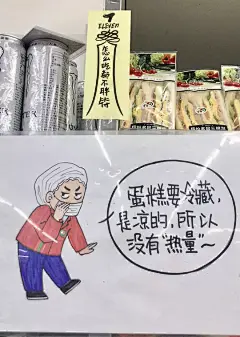 7
ELEVEN
怎么吃都不胖符
蛋糕要冷藏,
是凉的,所以
没有"热量"~